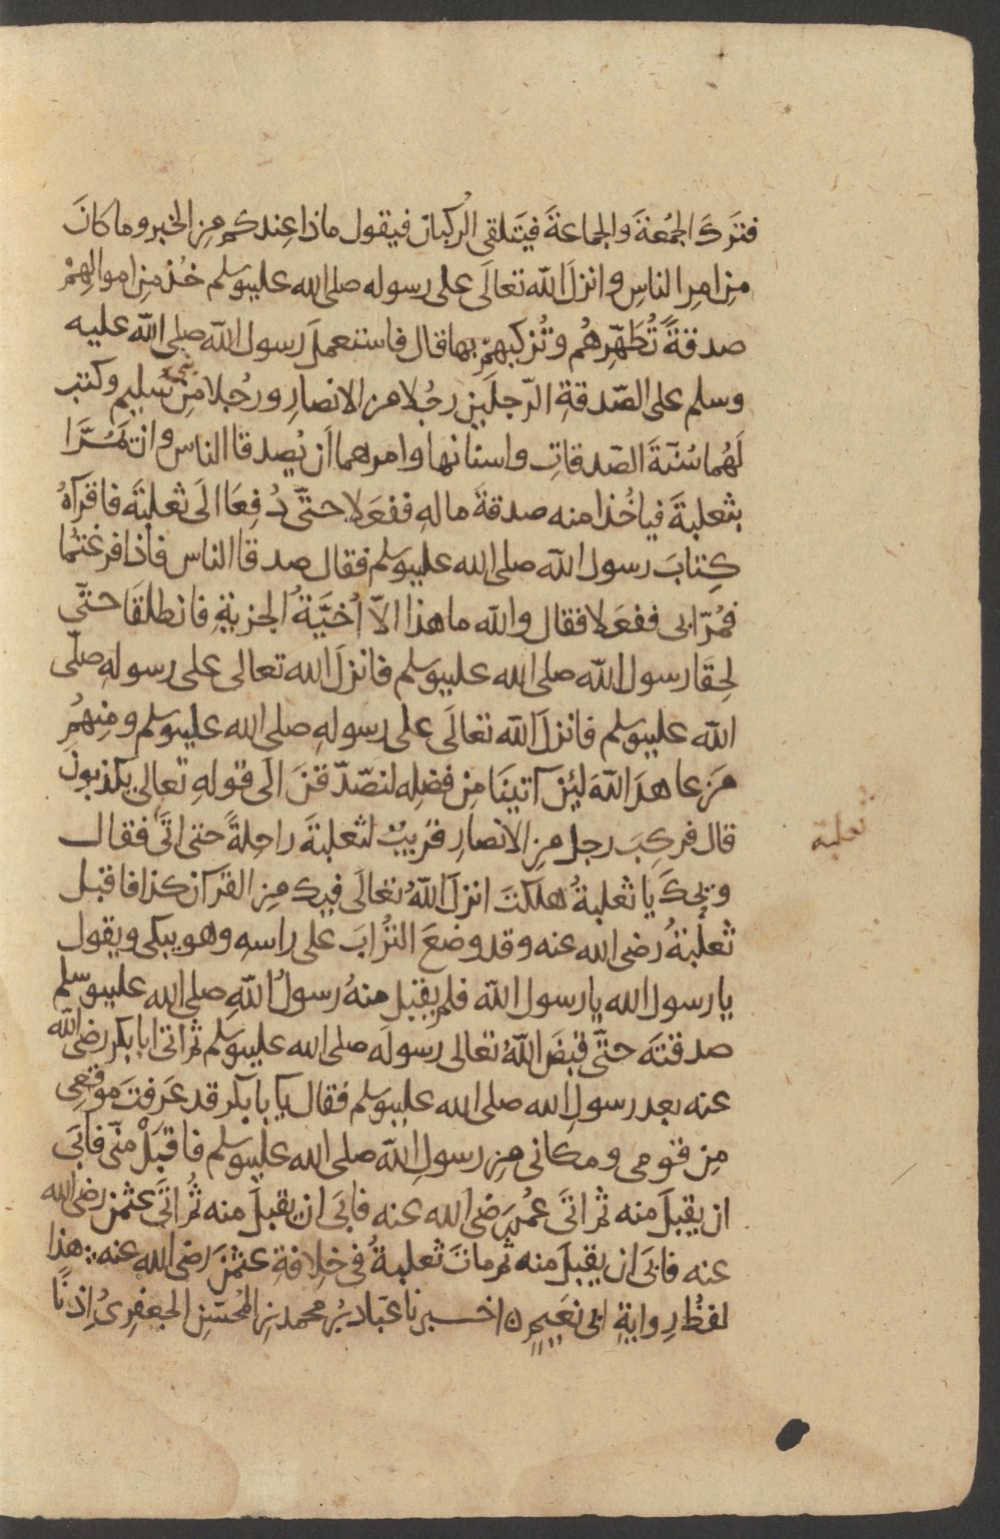 فتَركَ الجُمُعةَ والجماعةَ فيَتلقى الرُكبان فيقول ماذا عِندكم مِن الخبر وما كانَ
مِن امرِ الناسِ وانزلَ الله تعالَى على رسوله صلى الله عليه وسلم خُذ مِن اموالِهِمْ
صدقةً تُطَهّرهُم وتُزكيهمْ بها قال فاستعملَ رسول الله صلى الله عليه
وسلم على الصّدقةِ الرّجلَين رجُلا من الانصارِ ورجُلا مِن بني سُليمٍ وكتب
لَهُما سُنّةَ الصّدقاتِ واسنانها وامرهما اَن يُصدقا الناس وان يَمُرَّا
بثعلبةَ فياخُذا منه صدقةَ مالهِ ففعَلا حتّى دُفِعَا الَى ثعلبَةَ فاقرآهُ
كِتابَ رسول الله صلى الله عليه وسلم فقال صدقا الناس فاذا فرغتُما
فمُرّا بى ففعَلا فقال والله ما هذا الّا اُخيَّةُ الجزيةِ فانطلقَا حتّى
لحِقَا رسول الله صلى الله عليه وسلم فانزلَ الله تعالى على رسولهِ صلّى
الله عليه وسلم فانزلَ الله تعالَى على رسولهِ صلى الله عليه وسلم ومِنهُمْ
مَن عاهدَ اللهَ لئِن آتينَا مِن فضلِه لنصّدّقنَ الَى قولهِ تعالى يكذبونَ
قال فركِبَ رجل مِن الانصارِ قرَيبٌ لثعلبةَ راحِلةً حتى اتَى فقال
ويحكَ يا ثعلبةُ هلكتَ انزلَ اللهُ تعالَى فيك مِن القرآن كذا فاقبل
ثعلبةُ رضى الله عنه وقد وضعَ التُرابَ على راسهِ وهو يبكى ويقول
يا رسول الله يا رسول الله فلم يقبل منهُ رسولُ اللهِ صلى الله عليه وسلم
صدقتَه حتّى قبضَ اللهُ تعالى رسولَه صلى الله عليه وسلم ثم اتى ابا بكر رضى الله
عنه بعد رسولِ الله صلى الله عليه وسلم فقال يا با بكر قد عَرفتَ موقعى
مِن قومى ومكانى مِن رسولِ الله صلى الله عليه وسلم فاقبَلْ منّى فابَى
ان يقبلَ منه ثم اتَى عمُر رَضى الله عنه فابَى ان يقبلَ منه ثُم اتَى عثمن رضى الله
عنه فابَى ان يقبلَ منه ثم ماتَ ثعلبةُ فى خلافةِ عثمنَ رضى الله عنه هذا
لفظُ روايةِ ابى نعَيمٍ اخبرنا عبّادُ بن محمد بن المُحسّنِ الجعفرىُ اِذنًا
ثعلبة